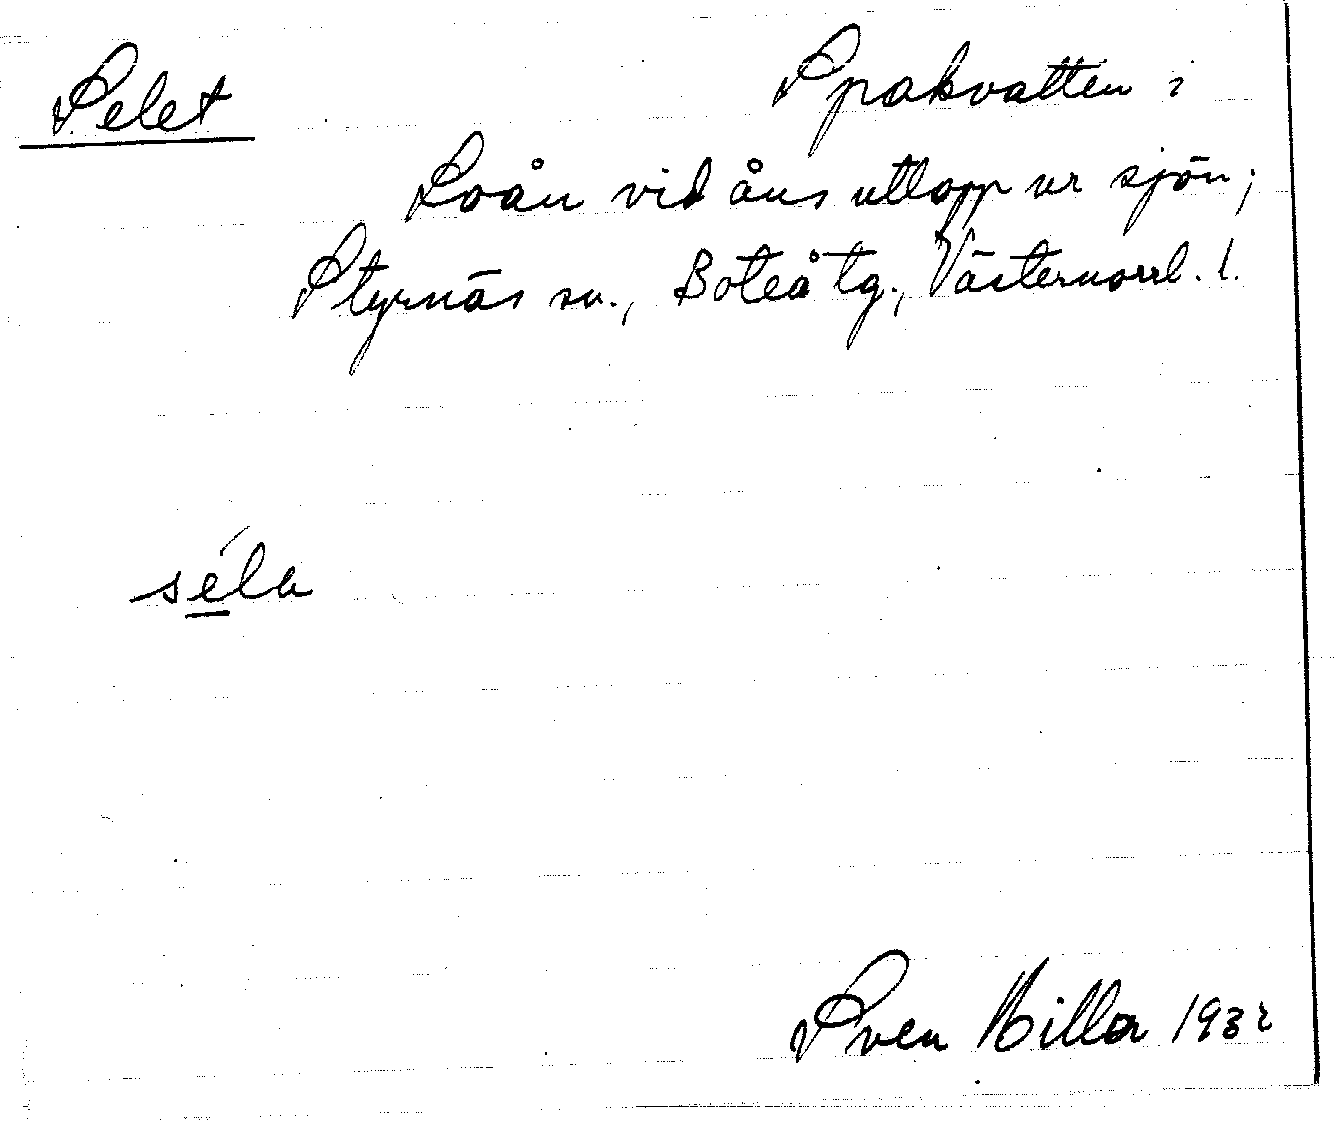 Selet
Spakvatten i
Loån vid åns utlopp ur sjön;
Styrnäs sn., Boteå tg., Västernorrl. l.
séla
Sven Milla 1932